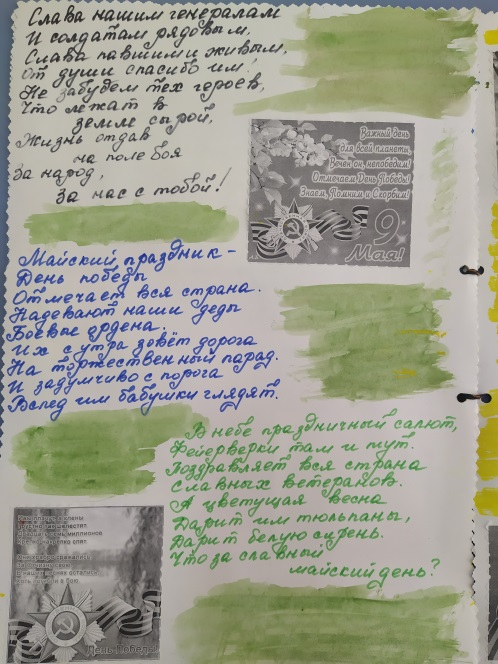 Слава нашим генералам
И солдатам рядовым.
Слава павшими живым,
От души спасибо им!
Не забудем тех героев,
Что лежат в
земле сырой,
Жизнь отдав
на поле боя
За народ,
За нас с тобой!
Важный день
для всей планеты,
Вечен он, непобедим!
Отмечаем День Победы!
Знаем, Помним и Скорбим!
9
Мая!
Майский праздник –
День победы
Отмечает вся страна.
Надевают наши деды
Боевые ордена.
Их с утра зовёт дорога
На торжественный парад.
И задумчиво с порога
Вслед им бабушки глядят.
В небе праздничный салют,
Фейерверки там и тут.
Поздравляет вся страна
славных ветеранов.
А цветущая весна
Дарит им тюльпаны,
Дарит белую сирень.
Что за славный
майский день?
миллионов
спят.
в бою.
День Победы